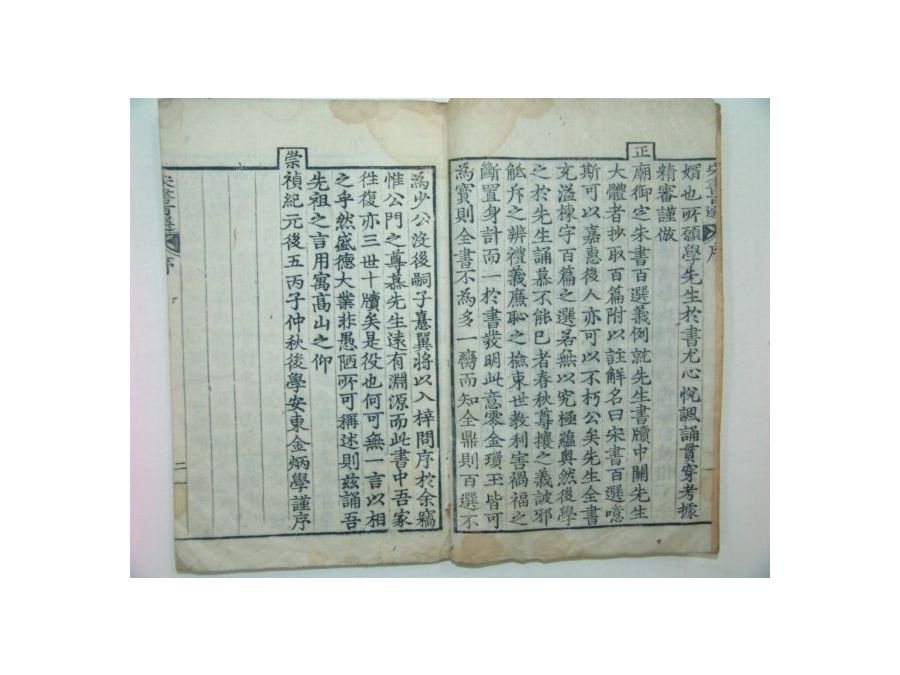 婿也所願學先生於書尤心悅諷誦貫穿考據
精審謹倣
正廟御定朱書百選義例就先生書牘中關先生
大體者抄取百篇附以註解名曰宋書百選噫
斯可以嘉惠後人亦可以不朽公矣先生全書
充溢棟宇百篇之選若無以究極蘊奧然後學
之於先生誦慕不能已者春秋尊攘之義詖邪
觝斥之辨禮義廉恥之檢束世教利害禍福之
斷置身計而一於書發明此意零金瑣玉皆可
為寶則全書不為多一臠而知全鼎則百選不
為少公沒後嗣子憙翼將以入梓問序於余竊
惟公門之尊慕先生遠有淵源而此書中吾家
往復亦三世十牘矣是役也何可無一言以相
之乎然盛德大業非愚陋所可稱述則茲誦吾
先祖之言用寓高山之仰
崇禎紀元後五丙子仲秋後學安東金炳學謹序
宋書百選 序 二